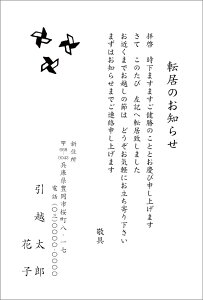 転居のお知らせ
拝啓 時下ますますご健勝のこととお慶び申し上げます
さて このたび 左記へ転居致しました
お近くまでお越しの節は どうぞお気軽にお立ち寄り下さい
まずはお知らせまでご連絡申し上げます
敬具
新住所
〒668-0042 兵庫県豊岡市桜町八-一七
電話(〇〇)〇〇〇〇-〇〇〇〇
引越 太郎
花子